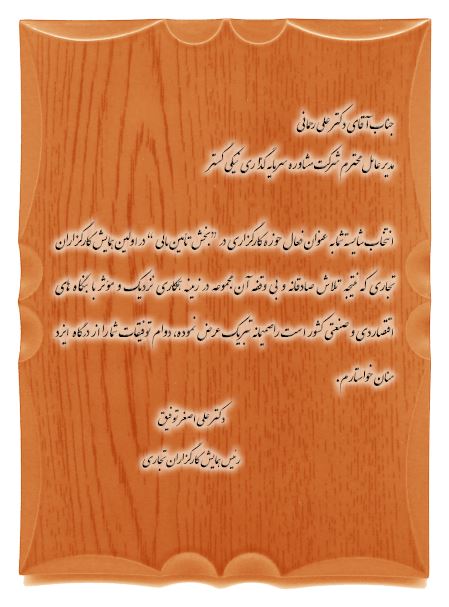 جناب آقای دکتر علی رحمانی
مدیر عامل محترم شرکت مشاوره سرمایه گذاری نیکی گستر
انتخاب شایسته شما به عنوان فعال حوزه کارگزاری در "بخش تأمین مالی" در اولین همایش کارگزاران
تجاری که نتیجه تلاش صادقانه و بی وقفه آن مجموعه در زمینه همکاری نزدیک و موثر با بنگاه های
اقتصادی و صنعتی کشور است را صمیمانه تبریک عرض نموده، دوام توفیقات شما را از درگاه ایزد
منان خواستارم.
دکتر علی اصغر توفیق
رئیس همایش کارگزاران تجاری